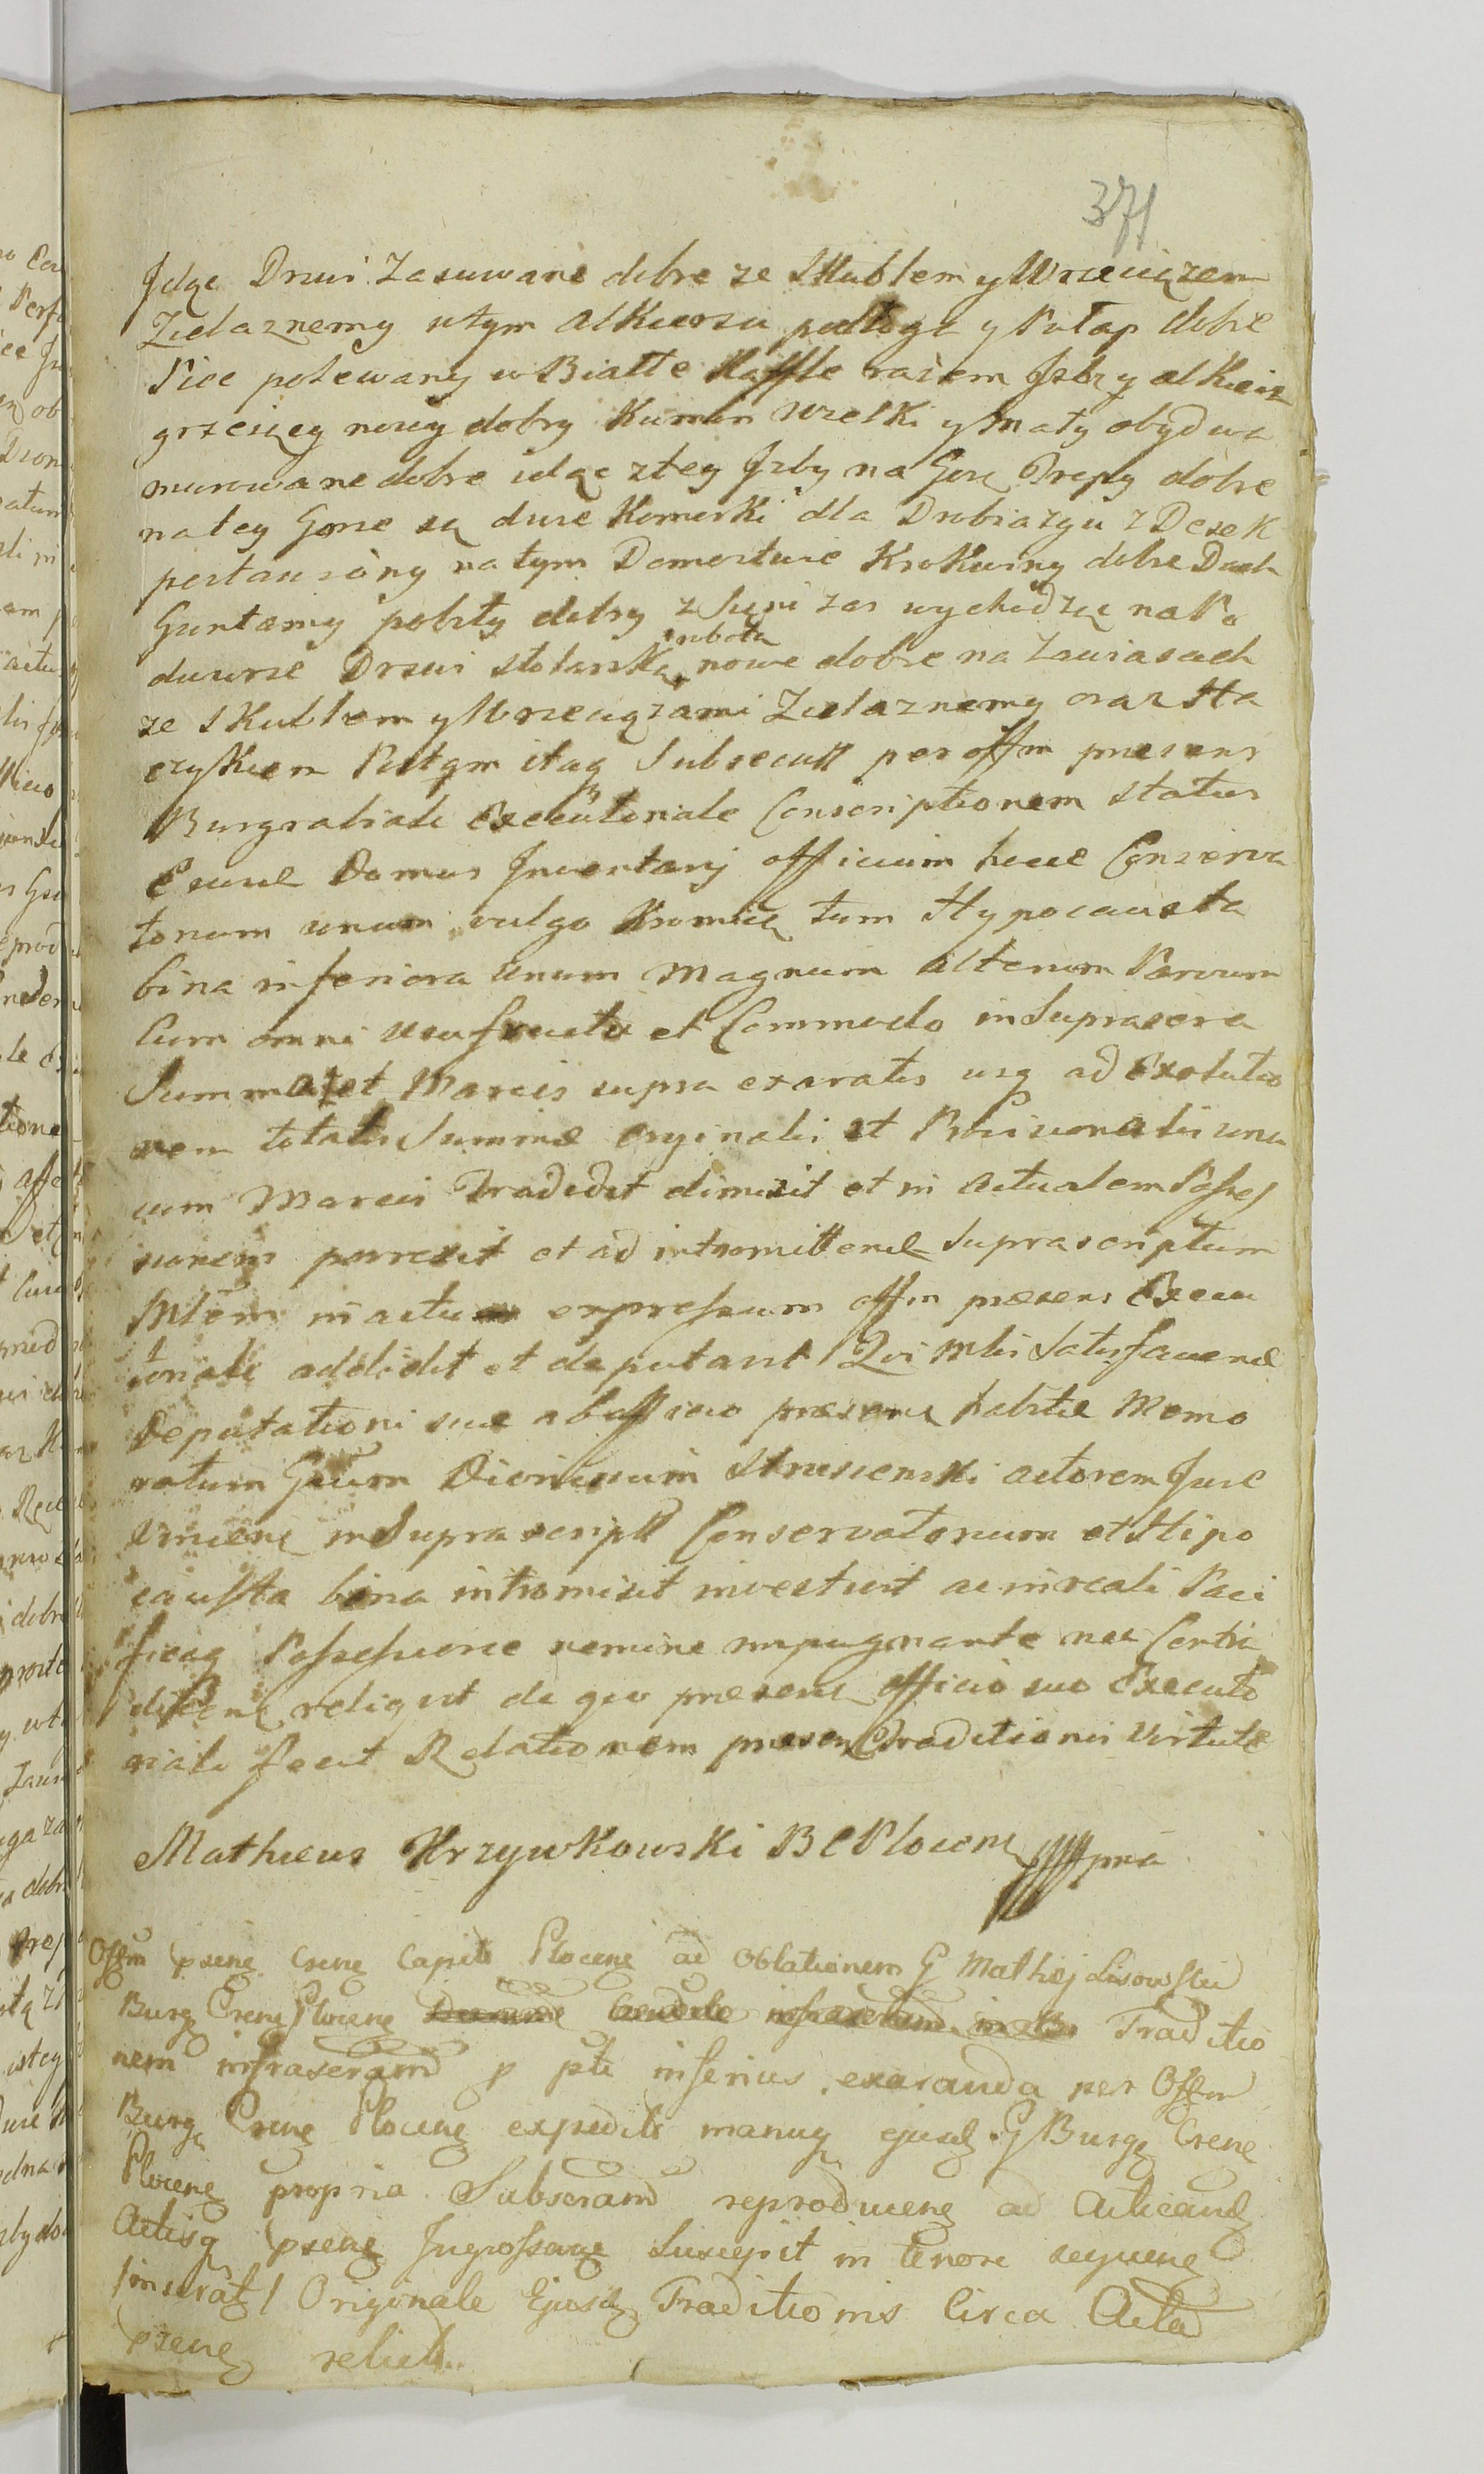 371
Idąc Drzwi Zasuwane dobre ze Skublem y Wrzeciązem
Zielaznemy wtym alkierzu podłoga y Pułap dobre
Piec polewany w Białłe Kaffle razem Izbę y alkierz
grzeiący nowy dobry Kumin wielki y mały obydwa
murowane dobre idąc ztey Izby na Gorę Drepy dobre
na tey Gorze są dwie Komorki dla Drobiazgu z Desek
postawiony na tym Domostwie Krokwiny dobre Dach
Guntamy pobity dobry z Sieni zas wychodząc na Po
dworze Drzwi stolarska robota nowe dobre na Zawiasach
ze Skublem y Wrzeciązami Zielaznemy oraz Ha
czykiem Postqm itaq Subsecutt per offm presens
Burgrabiale Executoriale Conscriptionem status
Ejusd Domus Inventarij officium huae Conserva
torium unum vulgo Kromicą tum Hypocausta
bina inferiora unum Magnum alterum Parvum
Cum omni usufructu et Commodo in Suprascra
Summa et Marcis supra exaratis usq ad Exolutio
nem totalis Summæ oryginalis et Provisionalis una
cum Marcis Tradidit dimisit et in actualem Posses
sionem porrexit et ad intromittend Suprascriptum
Mlem in actu expressum offm præsens Execu
toriale addidit et deputavit Qvi Mlis Satisfaciend
Deputationi suæ ab officio præsenq habitæ Memo
ratum Gsum Dionisium Strusienski actorem Jure
vincenq in Suprascriptt Conservatorium et Hipo
causta bina intromisit investivit ac in reali Paci
ficaq Possessione nemine impugnante nec Contra
dicenq reliqvit de qvo præsenq officio suo Executo
riali fecit Relationem præsenq Traditionis Virtute
Matheus Krzywkowski B C Plocenq mpria
Offm psenq Csenq Capitl Plocenq ad Oblationem G Mathej Lisowskii
Burgq Csenq Plocenq Traditio
nem infrascramd p pte inferius exaranda per Offm
Burgq Csenq Plocenq expeditt manuq ejusd G Burgq Csenq
Plocenq propria Subscramd reproducenq ad acticand
Actisq psenq Ingrossanq Suscepit in tenore sequenq
/inserat/ Originale Ejusdq Traditionis Circa Acta
psenq relictt